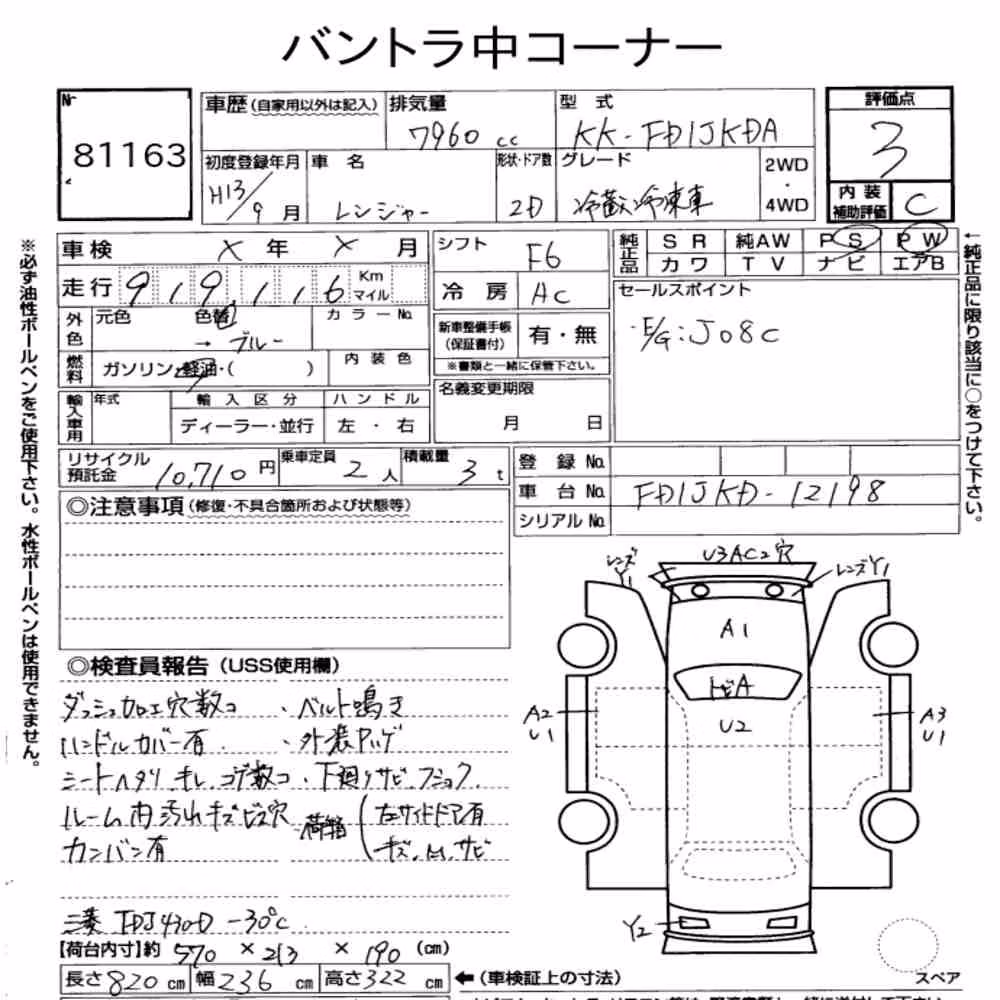 バントラ中コーナー
Nr 81163
車歴(自家用以外は記入) 排気量 7960 cc 型式 KK-FD1JKDA 評価点 3
初度登録年月 H13/9月 車名 レンジャー 形状・ドア数 2D グレード 冷蔵冷凍車 2WD・4WD 内装補助評価 C
車検 X年 X月 シフト F6 純正品 SR 純AW PS PW カワ TV ナビ エアB
走行 919,116 Km マイル 冷房 AC セールスポイント
・E/G:J08C
外色 元色 色替 → ブルー カラーNo. 新車整備手帳(保証書付) 有・無
※書類と一緒に保管下さい。
燃料 ガソリン・軽油・( ) 内装色 名義変更期限 月 日
輸入車用 年式 輸入区分 ハンドル
ディーラー・並行 左・右
リサイクル預託金 10,710円 乗車定員 2人 積載量 3t 登録No.
車台No. FD1JKD-12198
シリアルNo.
◎注意事項(修復・不具合箇所および状態等)
※必ず油性ボールペンをご使用下さい。水性ボールペンは使用できません。
←純正品に限り該当に○をつけて下さい。
◎検査員報告(USS使用欄)
ダッシュ加工穴数コ ・ベルト鳴き
ハンドルカバー有 ・外装
シートヘタリ キレ コゲ数コ ・下廻りサビ フショク
ルーム内汚れキズビス穴 ・荷箱 左サイドドア有
カンバン有 キズ、凹、サビ
三菱 TDJ430D -30℃
【荷台内寸】約 570 × 213 × 190 (cm)
長さ820cm 幅236cm 高さ322cm ←(車検証上の寸法)
U3AC2穴
レンズY1
レンズY1
A1
トビA
U2
A2
U1
A3
U1
Y2
スペア